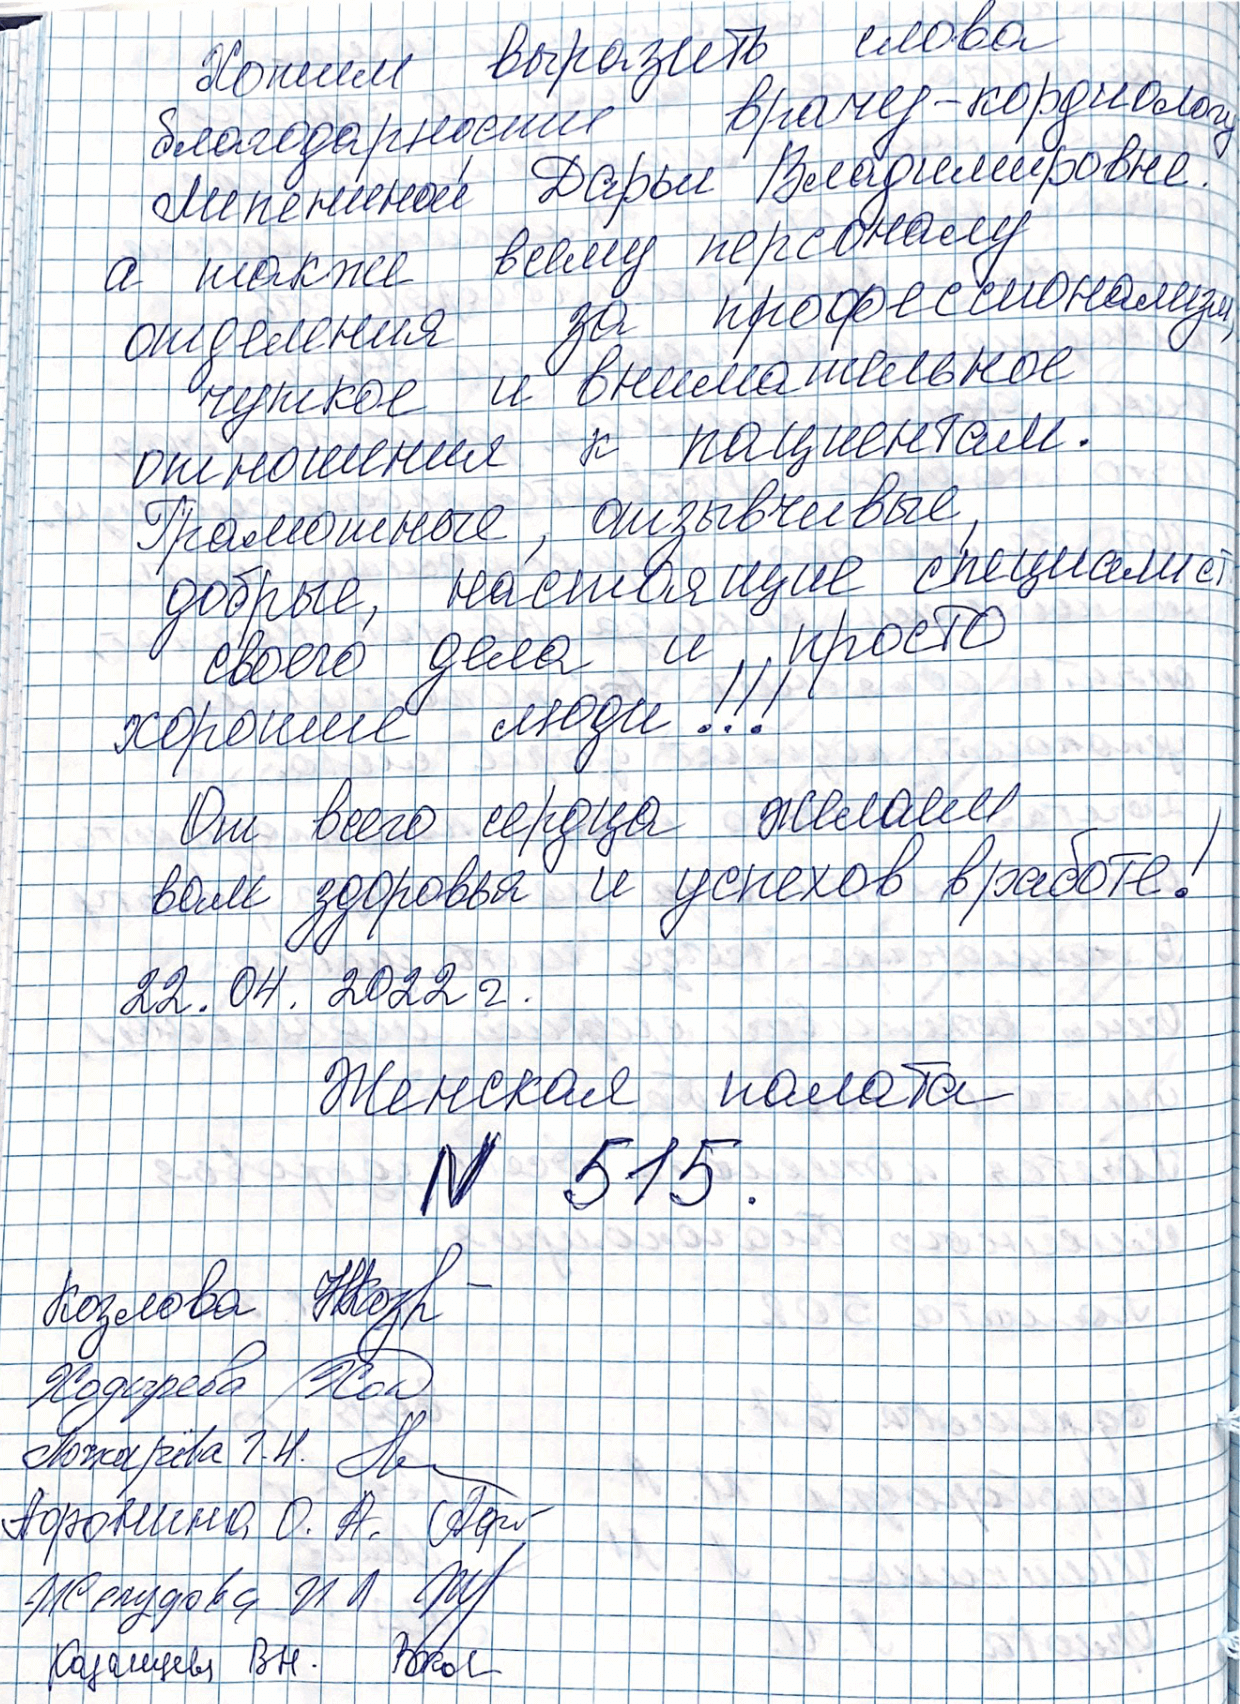 Хотим выразить слова
благодарности врачу-кордиологу
Дарьи Владимировне.
а также всему персоналу
отделения за профессионализм,
чуткое и внимательное
отношения к пациентам.
Грамотные, отзывчивые,
добрые, настоящие специалист
своего дела и просто
хорошие люди!!!
От всего сердца желаем
вам здоровья и успехов в работе!
22.04.2022 г.
Женская палата
N 515.
Козлова
Ходырева
Г.Н.
О. А.
В Н.